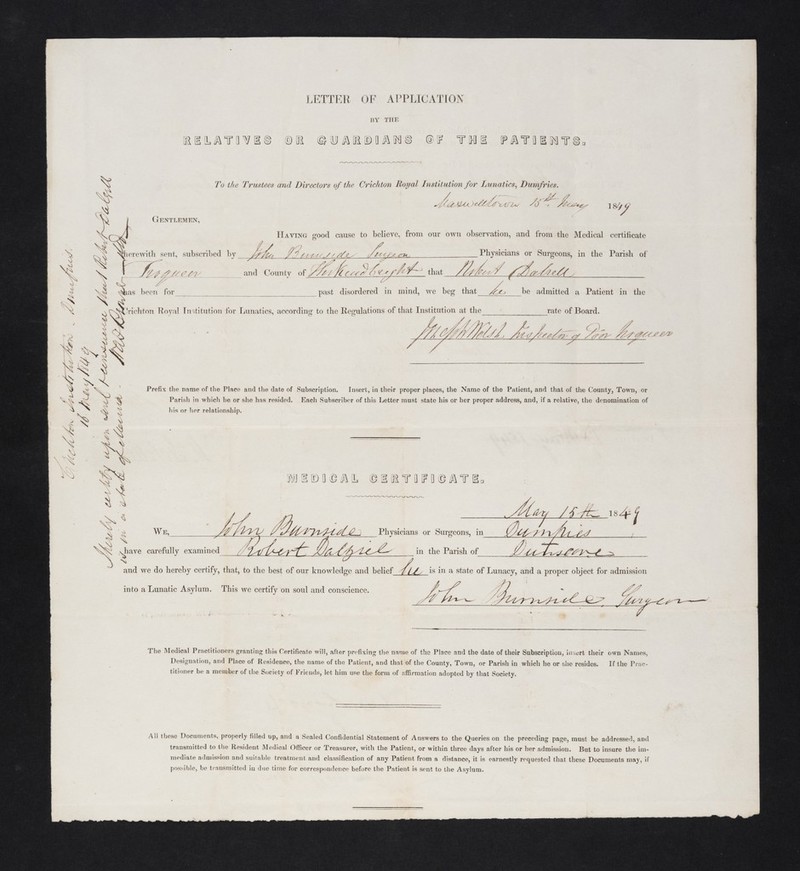 LETTER OF APPLICATION
BY THE
RELATIVES OR GUARDIANS OF THE PATIENTS.
To the Trustees and Directors of the Crichton Royal Institution for Lunatics, Dumfries.
Maxwelltown 15th May 1849
GENTLEMEN,
HAVING good cause to believe, from our own observation, and from the Medical certificate
herewith sent, subscribed by John Burnside Surgeon Physicians or Surgeons, in the Parish of
Troqueer and County of Kirkcudbright that Robert Dalzell
has been for past disordered in mind, we beg that he be admitted a Patient in the
Crichton Royal Institution for Lunatics, according to the Regulations of that Institution at the rate of Board.
Joseph Welsh Inspector of Poor Troqueer
Prefix the name of the Place and the date of Subscription. Insert, in their proper places, the Name of the Patient, and that of the County, Town, or
Parish in which he or she has resided. Each Subscriber of this Letter must state his or her proper address, and, if a relative, the denomination of
his or her relationship.
MEDICAL CERTIFICATE.
May 15th 1849
WE, John Burnside Physicians or Surgeons, in Dumfries
have carefully examined Robert Dalziel in the Parish of Dunscore
and we do hereby certify, that, to the best of our knowledge and belief he is in a state of Lunacy, and a proper object for admission
into a Lunatic Asylum. This we certify on soul and conscience.
John Burnside. Surgeon
The Medical Practitioners granting this Certificate will, after prefixing the name of the Place and the date of their Subscription, insert their own Names,
Designation, and Place of Residence, the name of the Patient, and that of the County, Town, or Parish in which he or she resides. If the Prac-
titioner be a member of the Society of Friends, let him use the form of affirmation adopted by that Society.
All these Documents, properly filled up, and a Sealed Confidential Statement of Answers to the Queries on the preceding page, must be addressed, and
transmitted to the Resident Medical Officer or Treasurer, with the Patient, or within three days after his or her admission. But to insure the im-
mediate admission and suitable treatment and classification of any Patient from a distance, it is earnestly requested that these Documents may, if
possible, be transmitted in due time for correspondence before the Patient is sent to the Asylum.
Crichton Institution, Dumfries.
16 May 1849
I hereby certify upon soul & conscience that Robert Dalzell
is in a state of